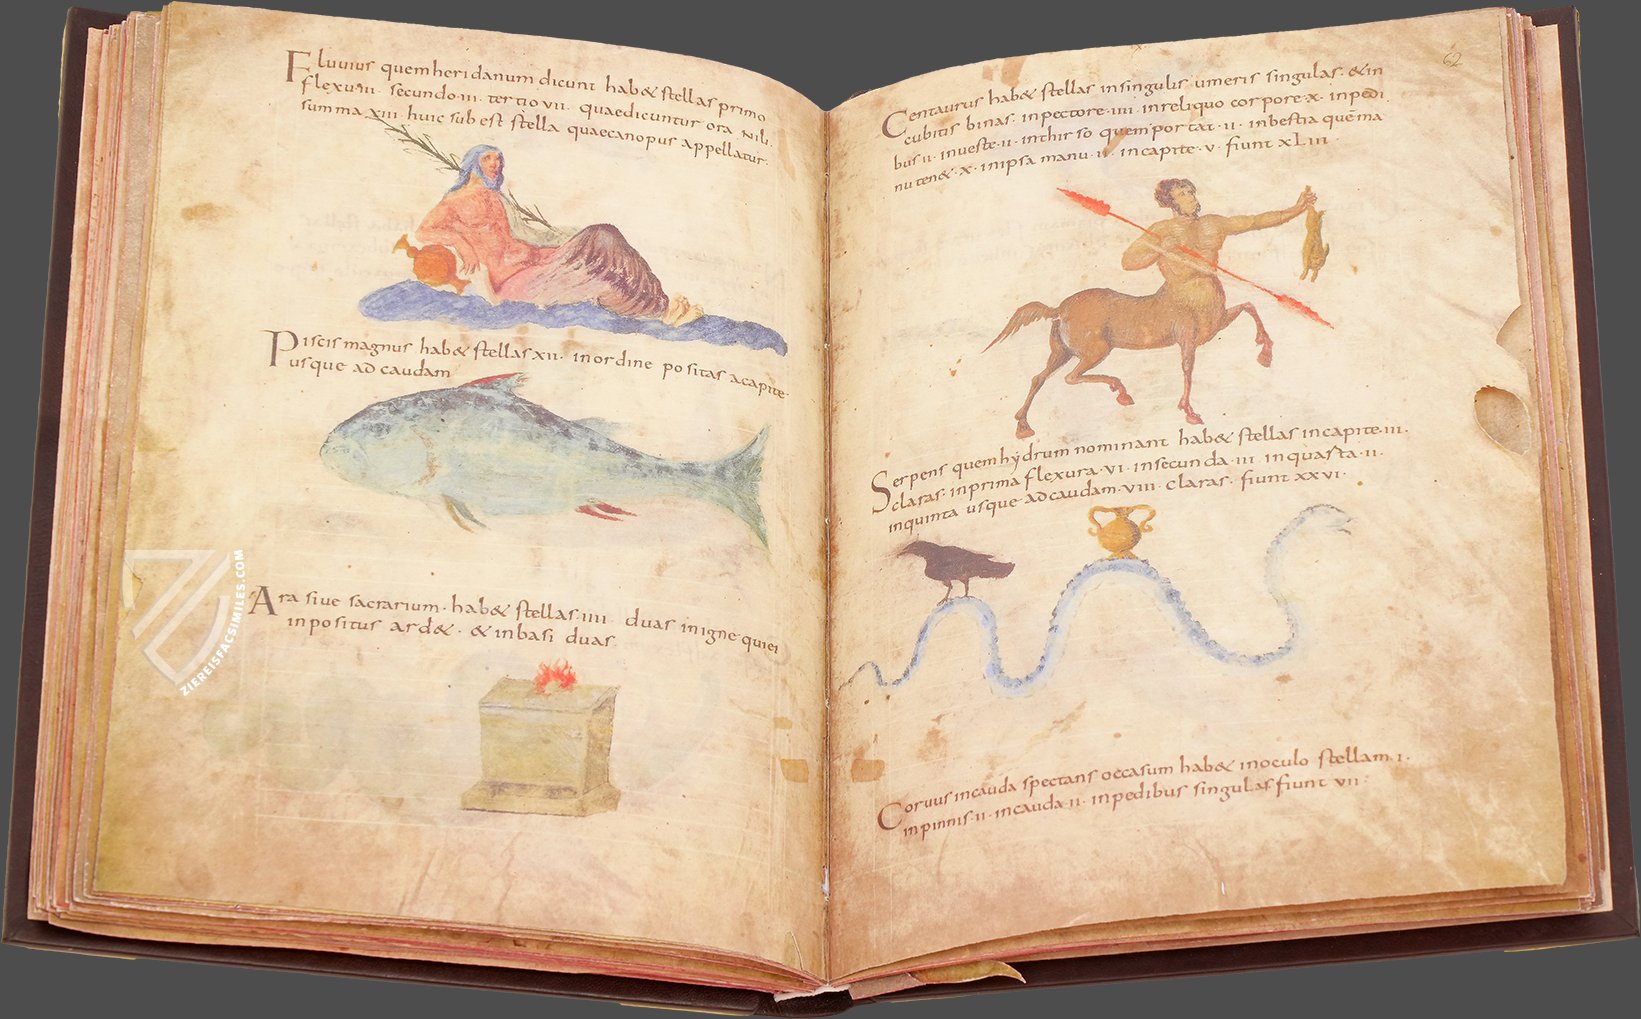 Fluuius quem heridanum dicunt hab& stellas primo
flexu III. secundo·III· tertio VII· quae dicuntur ora Nili.
summa XIII· huic sub est stella quae canopus appellatur·
Piscis magnus hab& stellas XII· in ordine positas a capite
usque ad caudam
Ara siue sacrarium· hab& stellas·IIII· duas in igne qui ei
in positus ard&· & in basi duas·
62
Centaurus hab& stellas in singulis umeris singulas· & in
cubitis binas· in pectore·IIII· in reliquo corpore·X· in pedi
bus·II· in ueste·II· in thirso quem portat·II· in bestia quem a
nu ten&·X· in ipsa manu·II· in capite·V· fiunt XLIII·
Serpens quem hydrum nominant hab& stellas in capite·III·
claras· in prima flexura·VI· in secunda·III· in quarta·II·
in quinta usque ad caudam·VIII· claras· fiunt XXVI·
Coruus in cauda spectans occasum hab& in oculo stellam·I·
in pinnis·II· in cauda·II· in pedibus singulas fiunt VII·
ZIEREISFACSIMILES.COM